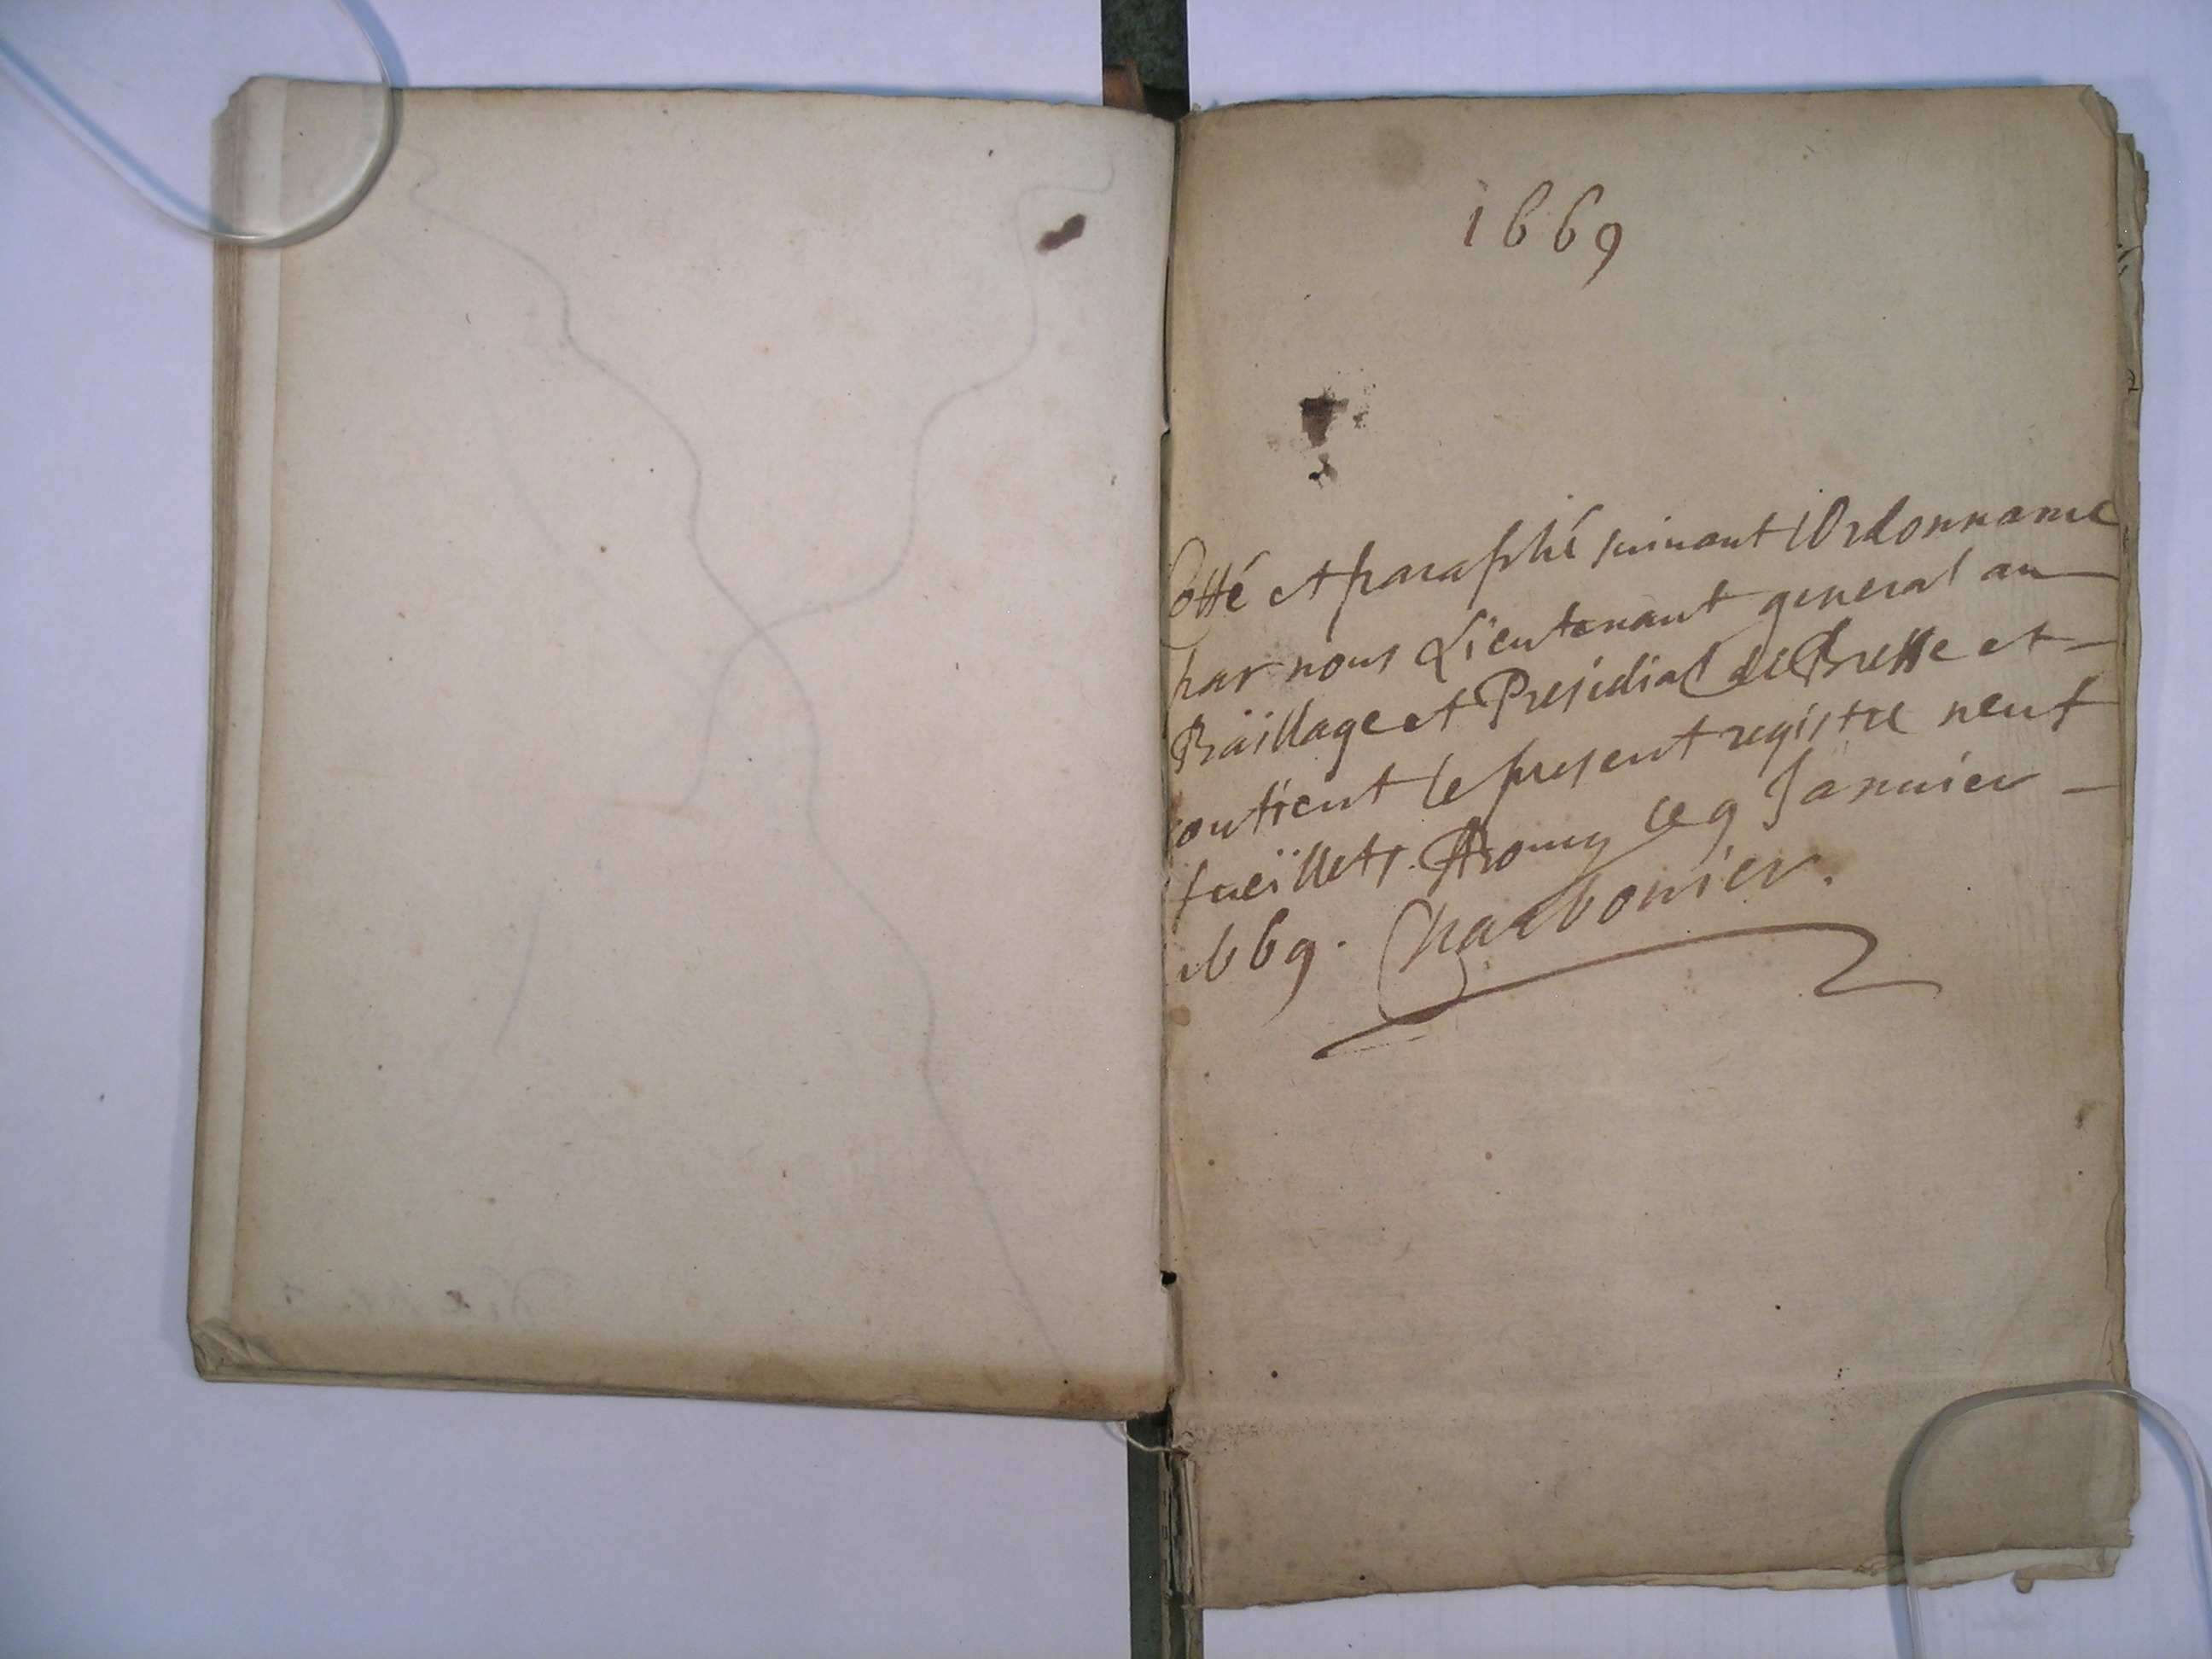 1669
Cotté et paraphé suiuant l'Ordonnance
par nous Lieutenant general au
Bäillage et Presidial de Bresse et
contient le present registre neuf
fueïllets. A Bourg le 9 Januier
1669. Charbonnier.